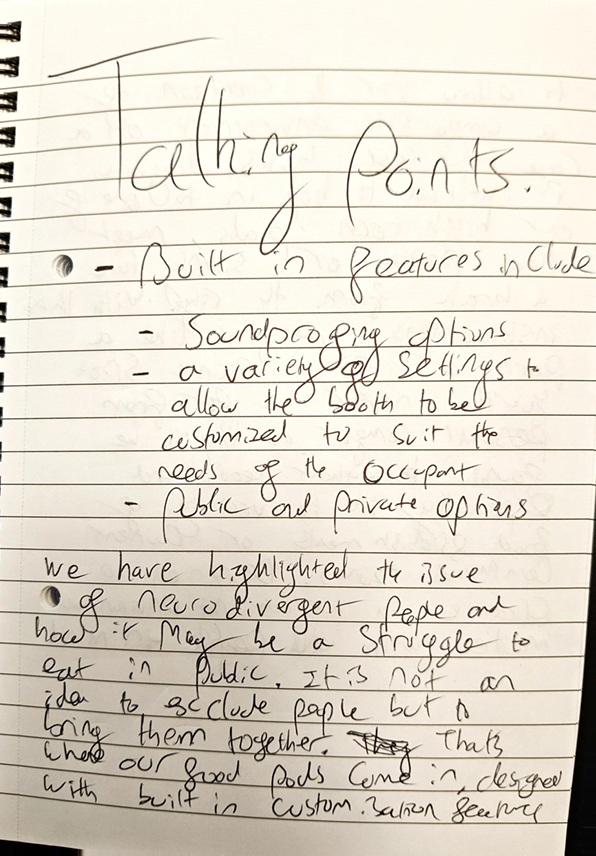 Talking Points.
- Built in features include
- Soundproofing options
- a variety of settings to
allow the booth to be
customized to suit the
needs of the occupant
- public and private options
we have highlighted the issue
of neurodivergent people and
how it may be a struggle to
eat in public. It is not an
idea to exclude people but to
bring them together. Thats
where our food pods come in, designed
with built in customisation feature